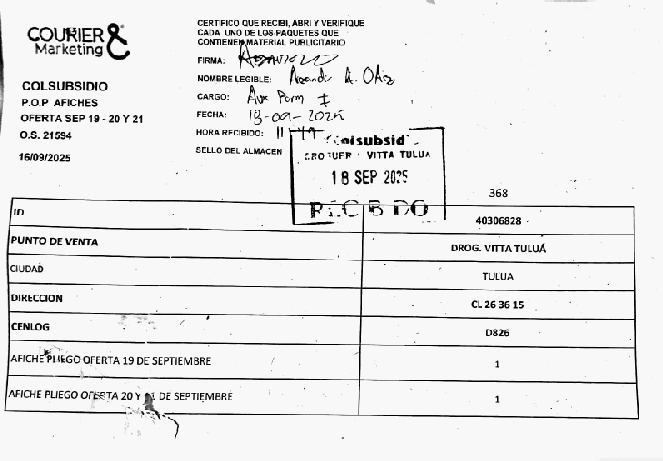 COURIER &
Marketing
COLSUBSIDIO
P.O.P AFICHES
OFERTA SEP 19 - 20 Y 21
O.S. 21594
16/09/2025
CERTIFICO QUE RECIBI, ABRI Y VERIFIQUE
CADA UNO DE LOS PAQUETES QUE
CONTIENEN MATERIAL PUBLICITARIO
FIRMA:
NOMBRE LEGIBLE: A.
CARGO: Aux Farm I
FECHA: 18-09-2025
HORA RECIBIDO: 11:49
SELLO DEL ALMACEN
Colsubsid
VITTA TULUA
18 SEP 2025
RECIBIDO
368
ID 40306828
PUNTO DE VENTA DROG. VITTA TULUÁ
CIUDAD TULUA
DIRECCION CL 26 36 15
CENLOG D826
AFICHE PLIEGO OFERTA 19 DE SEPTIEMBRE 1
AFICHE PLIEGO OFERTA 20 Y 21 DE SEPTIEMBRE 1